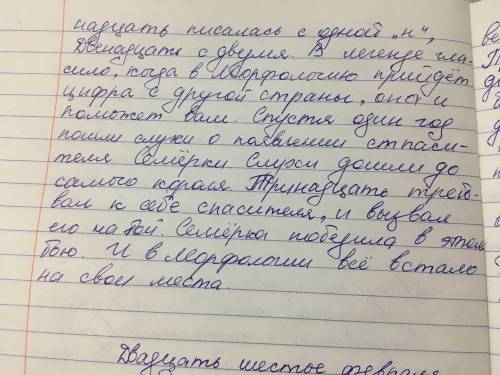 надцать писалась с одной „н",
Двенадцать с двумя. В легенде гла-
сило, когда в Морфологию прийдёт
цифра с другой страны, она и
поможет вам. Спустя один год
пошли слухи о появлении стпаси-
теля Семёрки. Слухи дошли до
самого короля. Тринадцать требо-
вал к себе спасителя, и вызвал
его на бой. Семёрка победила в этом
бою. И в Морфологии всё встало
на свои места.
Двадцать шестое февраля